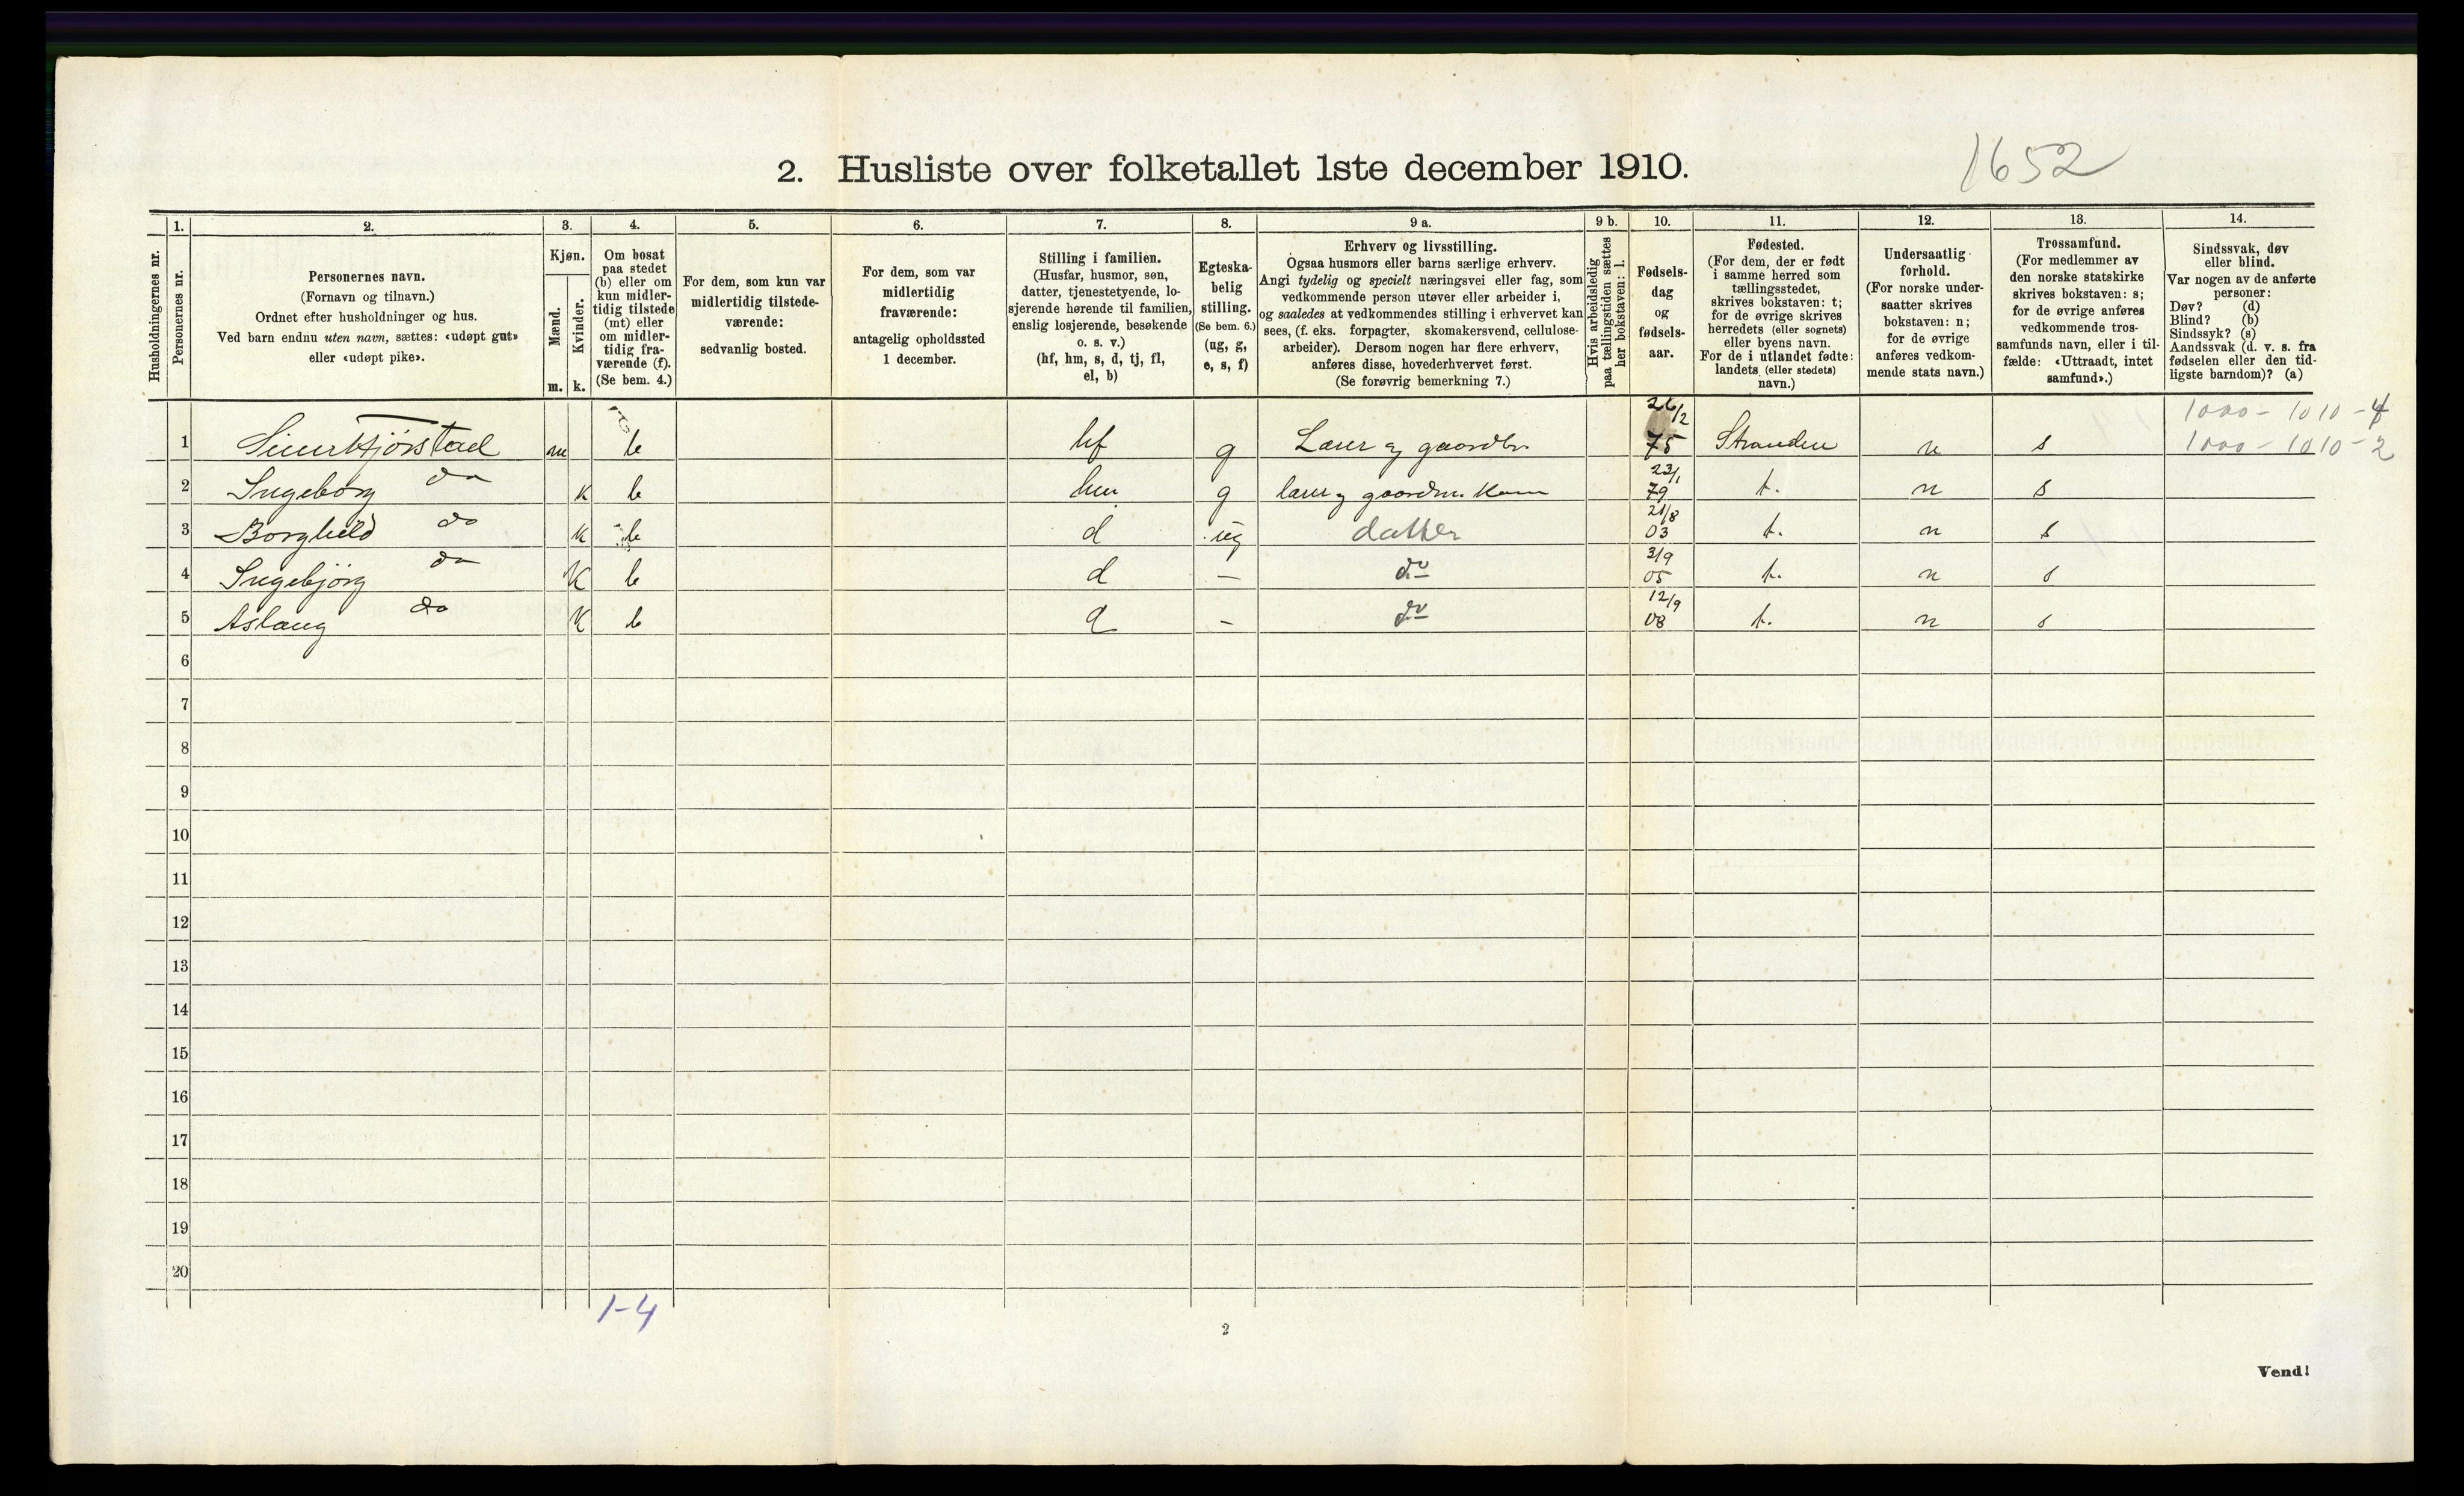 2. Husliste over folketallet 1ste december 1910.
1652
1. 2. 3. 4. 5. 6. 7. 8. 9 a. 9 b. 10. 11. 12. 13. 14.
Husholdningernes nr.
Personernes nr.
Personernes navn.
(Fornavn og tilnavn.)
Ordnet efter husholdninger og hus.
Ved barn endnu uten navn, sættes: «udøpt gut»
eller «udøpt pike».
Kjøn.
Mænd.
m.
Kvinder.
k.
Om bosat
paa stedet
(b) eller om
kun midler-
tidig tilstede
(mt) eller
om midler-
tidig fra-
værende (f).
(Se bem. 4.)
For dem, som kun var
midlertidig tilstede-
værende:
sedvanlig bosted.
For dem, som var
midlertidig
fraværende:
antagelig opholdssted
1 december.
Stilling i familien.
(Husfar, husmor, søn,
datter, tjenestetyende, lo-
sjerende hørende til familien,
enslig losjerende, besøkende
o. s. v.)
(hf, hm, s, d, tj, fl,
el, b)
Egteska-
belig
stilling.
(Se bem. 6.)
(ug, g,
e, s, f)
Erhverv og livsstilling.
Ogsaa husmors eller barns særlige erhverv.
Angi tydelig og specielt næringsvei eller fag, som
vedkommende person utøver eller arbeider i,
og saaledes at vedkommendes stilling i erhvervet kan
sees, (f. eks. forpagter, skomakersvend, cellulose-
arbeider). Dersom nogen har flere erhverv,
anføres disse, hovederhvervet først.
(Se forøvrig bemerkning 7.)
Hvis arbeidsledig
paa tællingstiden sættes
her bokstaven: l.
Fødsels-
dag
og
fødsels-
aar.
Fødested.
(For dem, der er født
i samme herred som
tællingsstedet,
skrives bokstaven: t;
for de øvrige skrives
herredets (eller sognets)
eller byens navn.
For de i utlandet fødte:
landets (eller stedets)
navn.)
Undersaatlig
forhold.
(For norske under-
saatter skrives
bokstaven: n;
for de øvrige
anføres vedkom-
mende stats navn.)
Trossamfund.
(For medlemmer av
den norske statskirke
skrives bokstaven: s;
for de øvrige anføres
vedkommende tros-
samfunds navn, eller i til-
fælde: «Uttraadt, intet
samfund».)
Sindssvak, døv
eller blind.
Var nogen av de anførte
personer:
Døv? (d)
Blind? (b)
Sindssyk? (s)
Aandssvak (d. v. s. fra
fødselen eller den tid-
ligste barndom)? (a)
1000 - 1010 - 4
1 m b hf g Lærer og gaardbr 26/2 75 Stranden n s 1000 - 1010 - 2
2 Ingeborg do k b hm g lærer og gaardm. kone 23/1 79 t. n s
3 Borghild do k b d ug datter 21/8 03 t. n s
4 Ingebjørg do K b d — do 3/9 05 t. n s
5 Aslaug do K b d - do 12/9 08 t. n s
6
7
8
9
10
11
12
13
14
15
16
17
18
19
20
1-4
2
Vend!